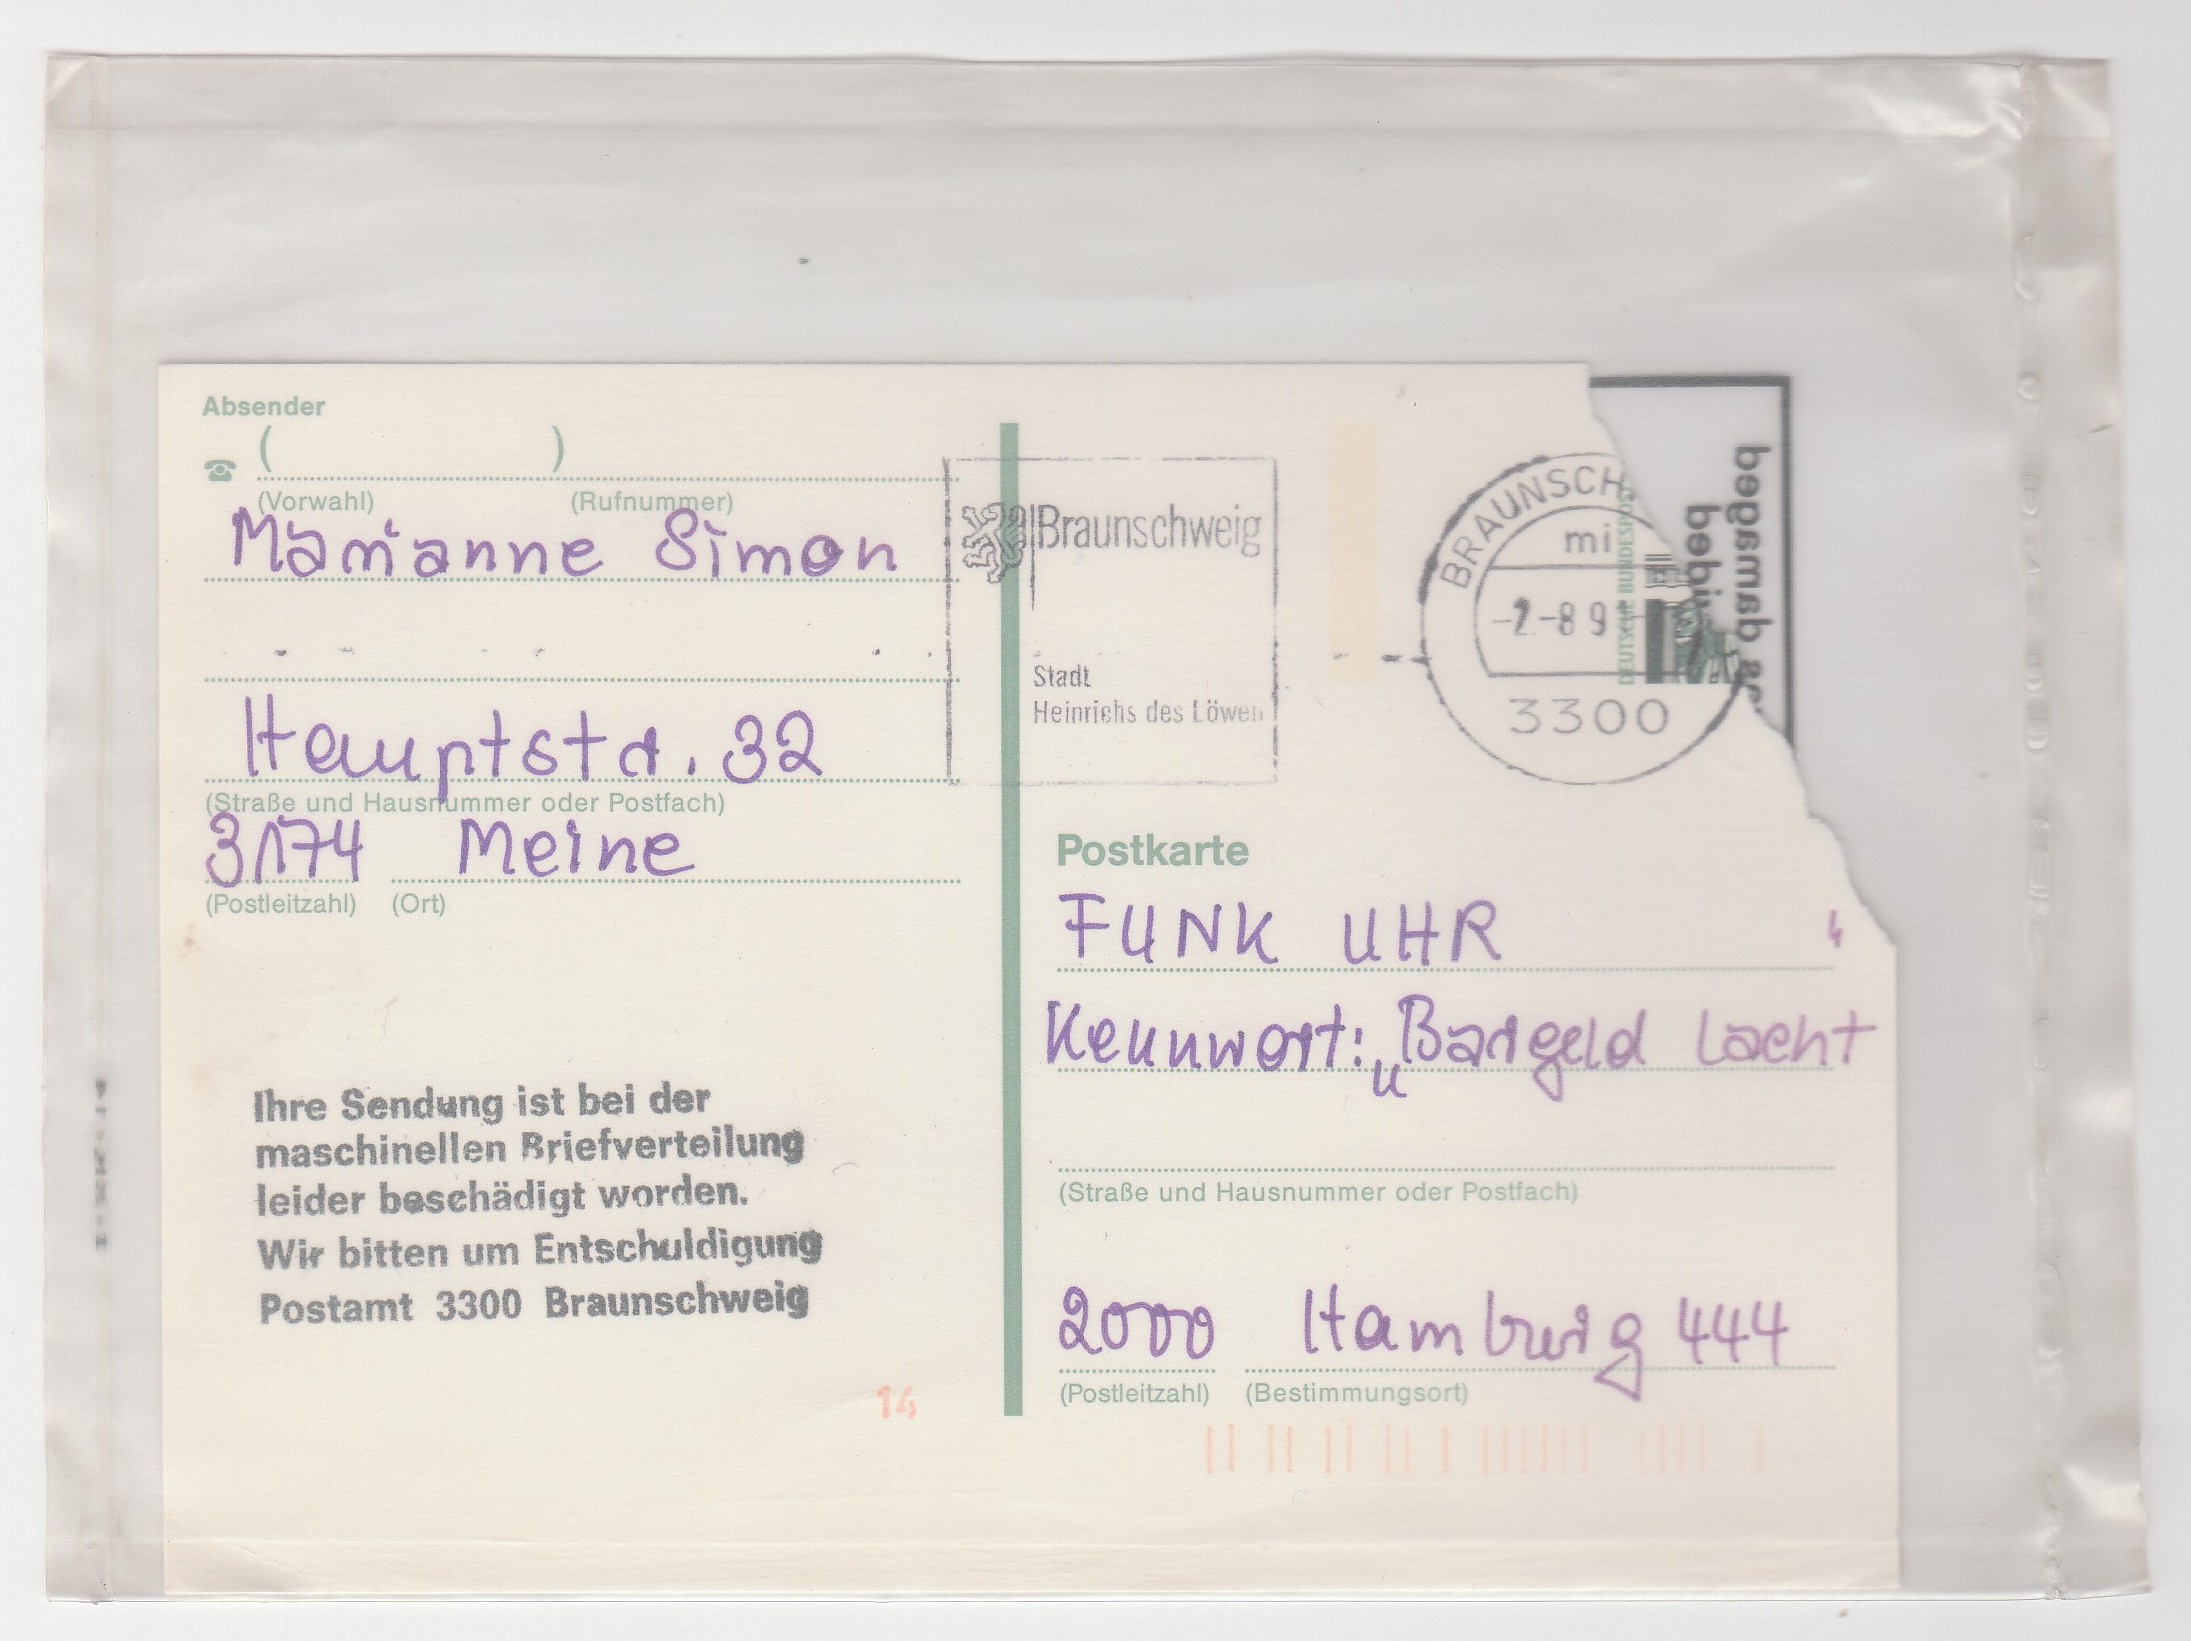 Absender
( )
(Vorwahl) (Rufnummer)
Marianne Simon
Hauptstr. 32
(Straße und Hausnummer oder Postfach)
3174 Meine
(Postleitzahl) (Ort)
Ihre Sendung ist bei der
maschinellen Briefverteilung
leider beschädigt worden.
Wir bitten um Entschuldigung
Postamt 3300 Braunschweig
14
Braunschweig
Stadt
Heinrichs des Löwen
BRAUNSCH
mi
-8 9
3300
DEUTSCHE BUNDESPOST
damaged
Postkarte
FUNK UHR
Kennwort: „Bargeld lacht“
(Straße und Hausnummer oder Postfach)
2000 Hamburg 444
(Postleitzahl) (Bestimmungsort)